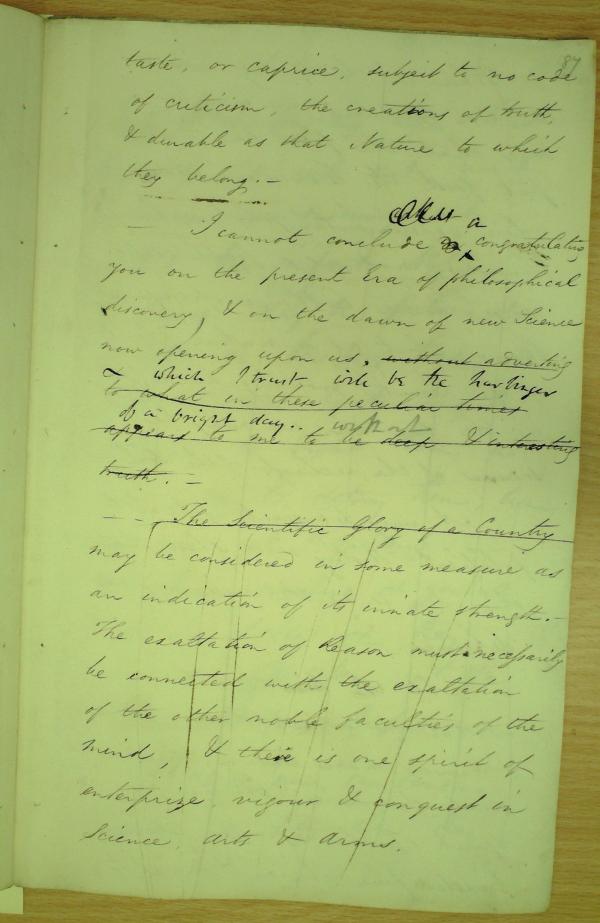 87
taste, or caprice, subject to no code
of criticism, the creations of truth,
& durable as that Nature to which
they belong. –
– I cannot conclude a congratulating
you on the present Era of philosophical
discovery, & on the dawn of new Science
now opening upon us, without adverting
– which I trust will be the harbinger
to what in these peculiar times
of a bright day.. without
appears to me to be deep & interesting
truth. –
– – The Scientific Glory of a Country
may be considered in some measure as
an indication of its innate strength. –
The exaltation of Reason must necessarily
be connected with the exaltation
of the other noble faculties of the
mind, & there is one spirit of
enterprize, vigour & conquest in
Science, arts & arms.